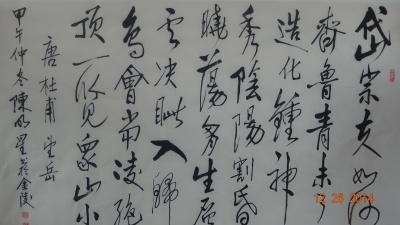 岱宗夫如何
齊魯青未了
造化鍾神
秀陰陽割昏
曉蕩胸生层
云決眦入歸
鳥會當凌絕
頂一览眾山小
唐杜甫望岳
甲午仲冬陳星於金陵
12 28 2014